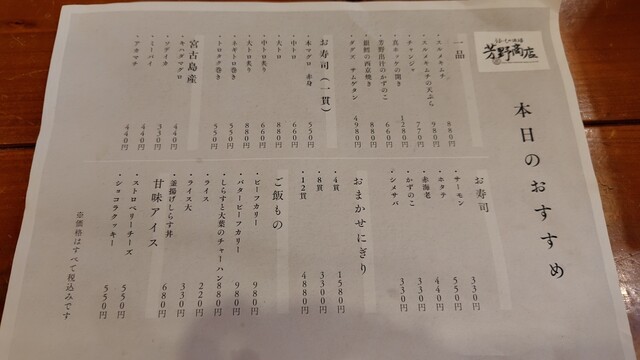 芳野商店
本日のおすすめ
一品
・スルメキムチ 880円
・スルメキムチの天ぷら 980円
・チャンジャ 770円
・真ホッケの開き 1280円
・芳野出汁のかずのこ 660円
・銀鱈の西京焼き 880円
サムゲタン 4980円
お寿司(一貫)
・本マグロ 赤身 550円
・中トロ 660円
・大トロ 880円
・中トロ炙り 660円
・大トロ炙り 880円
・ネギトロ巻き 550円
・トロタク巻き 550円
宮古島産
・キハダマグロ 440円
・ソデイカ 330円
・ミーバイ 440円
・アカマチ 440円
お寿司
・サーモン 330円
・ホタテ 550円
・赤海老 440円
・かずのこ 330円
・シメサバ 330円
おまかせにぎり
・4貫 1580円
・8貫 3300円
・12貫 4880円
ご飯もの
・ビーフカリー 980円
・バタービーフカリー 980円
・しらすと大葉のチャーハン 880円
・ライス 220円
・ライス大 330円
・釜揚げしらす丼 680円
甘味アイス
・ストロベリーチーズ 550円
・ショコラクッキー 550円
※価格はすべて税込みです